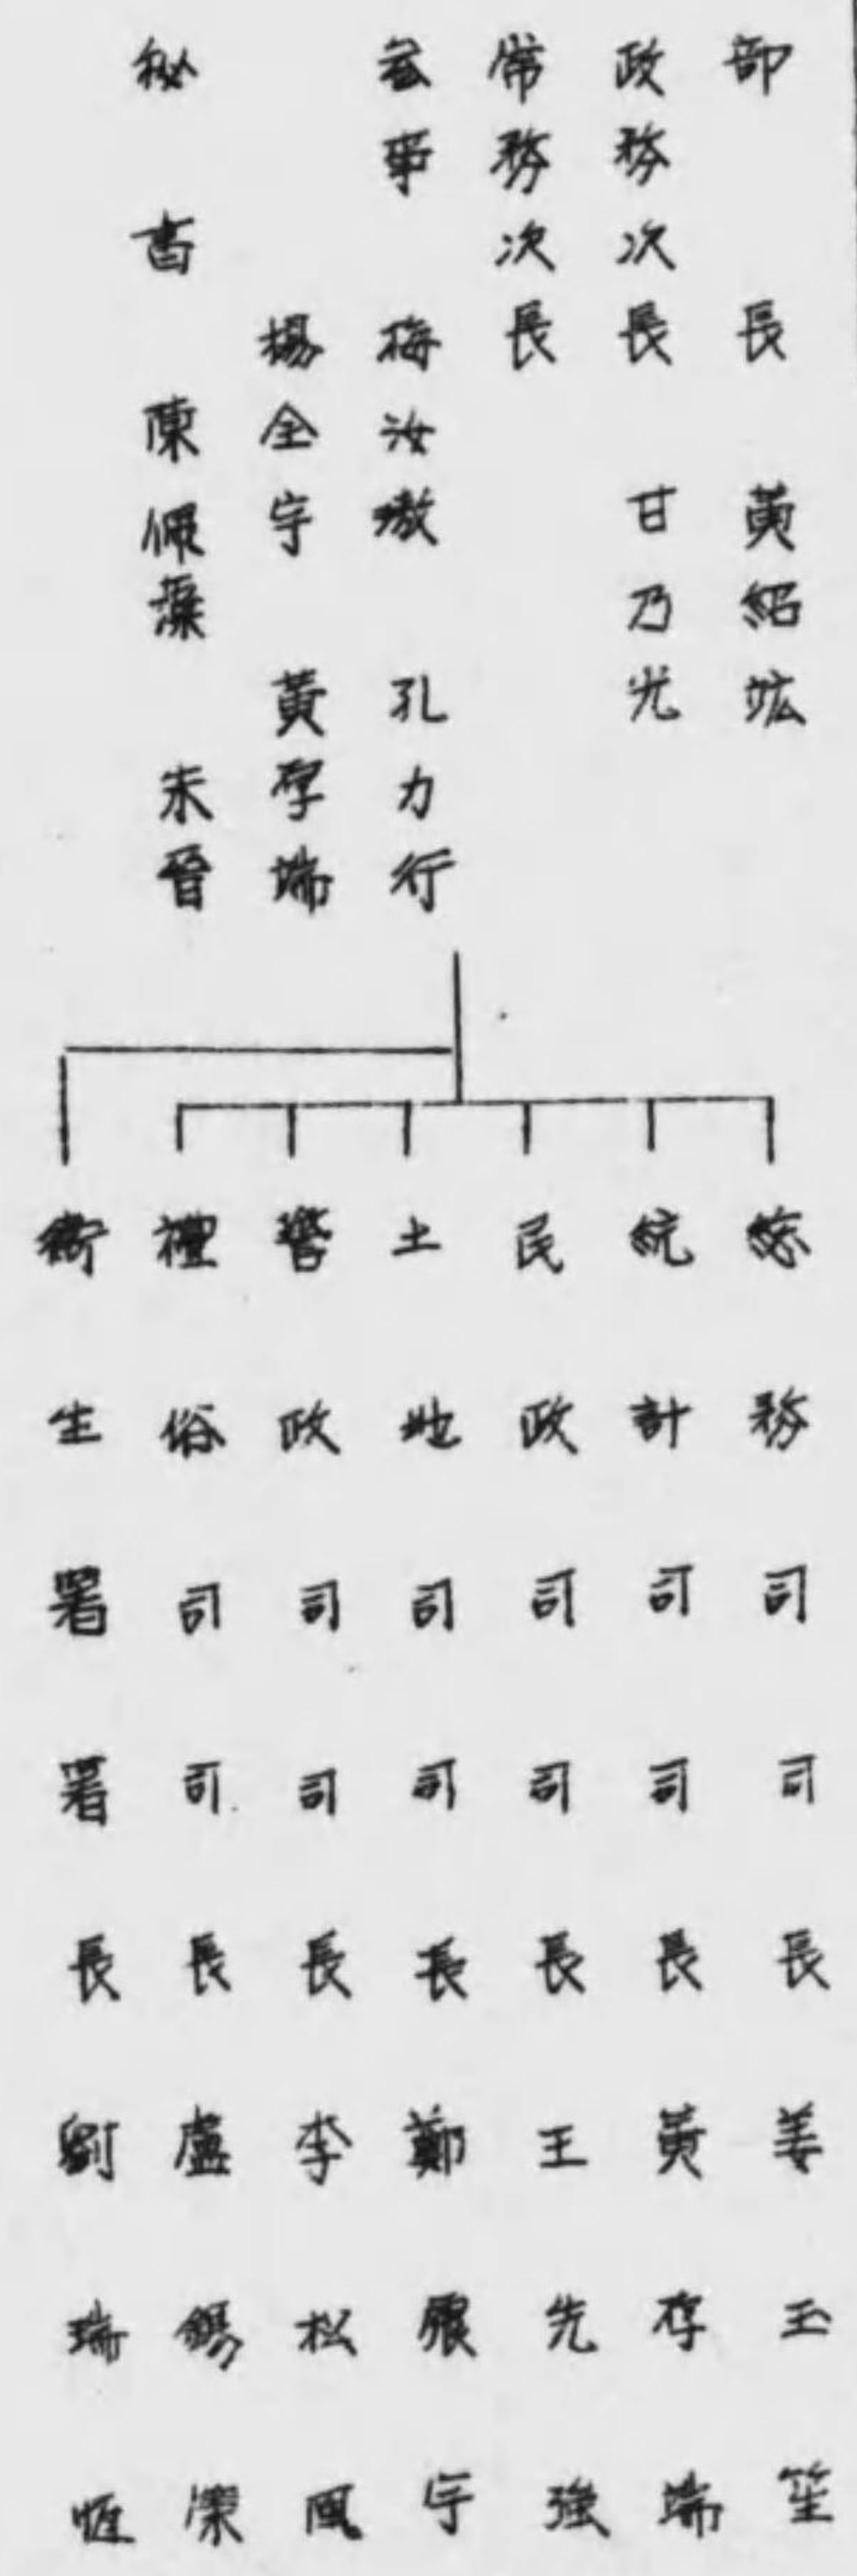 部長 黃紹竑
政務次長 甘乃光
常務次長
参事 梅汝璈 孔力行
楊全宇 黃存端
秘書 陳佩 朱晉
綜務司司長姜玉笙
統計司司長黃存端
民政司司長王先強
土地司司長鄭震宇
警政司司長李松風
禮俗司司長盧錫
衛生署署長劉瑞恆